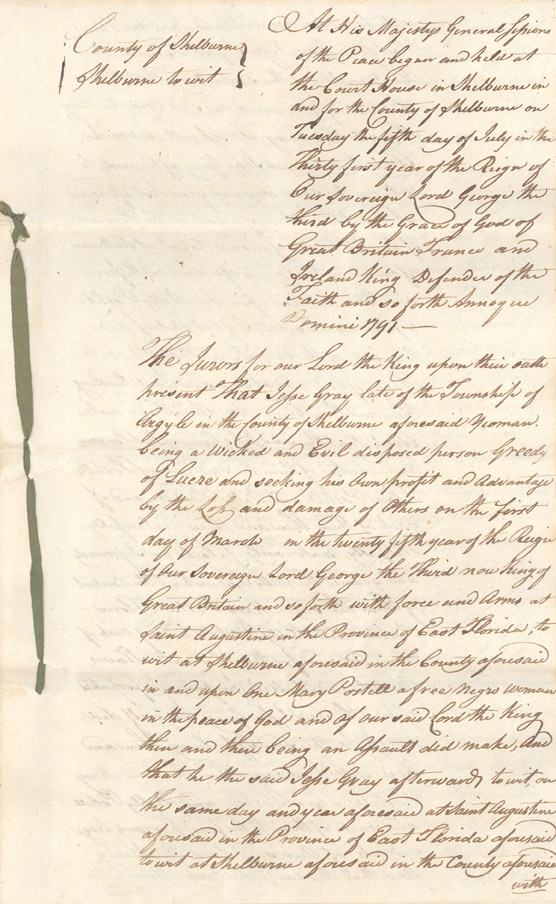 County of Shelburne }
Shelburne to wit }
At His Majestys General Sessions
of the Peace begun and held at
the Court House in Shelburne in
and for the County of Shelburne on
Tuesday the fifth day of July in the
Thirty first year of the Reign of
Our Sovereign Lord George the
third by the Grace of God of
Great Britain France and
Ireland King Defender of the
Faith and so forth Annoque
Domini 1791 —
The Jurors for our Lord the King upon their oath
present That Jesse Gray late of the Township of
Argyle in the County of Shelburne aforesaid Yeoman.
being a Wicked and Evil disposed person Greedy
of Lucre and seeking his Own profit and Advantage
by the Loss and damage of Others on the first
day of March in the twenty fifth year of the Reign
of Our Sovereign Lord George the Third now King of
Great Britain and so forth with force and Arms at
Saint Augustine in the Province of East Florida, to
wit at Shelburne aforesaid in the County aforesaid
in and upon One Mary Postell a free Negro woman
in the peace of God and of our said Lord the King
then and there being an Assault did make, And
that he the said Jesse Gray afterwards to wit, on
the same day and year aforesaid at Saint Augustine
aforesaid in the Province of East Florida aforesaid
to wit at Shelburne aforesaid in the County aforesaid
with